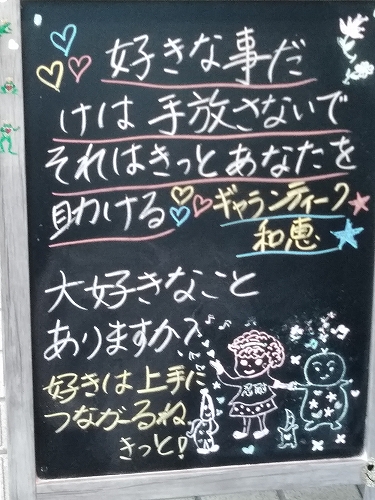 好きな事だ
けは手放さないで
それはきっとあなたを
助ける ギャランティーク
和恵
大好きなこと
ありますか?
好きは上手に
つながるね
きっと!
忍耐